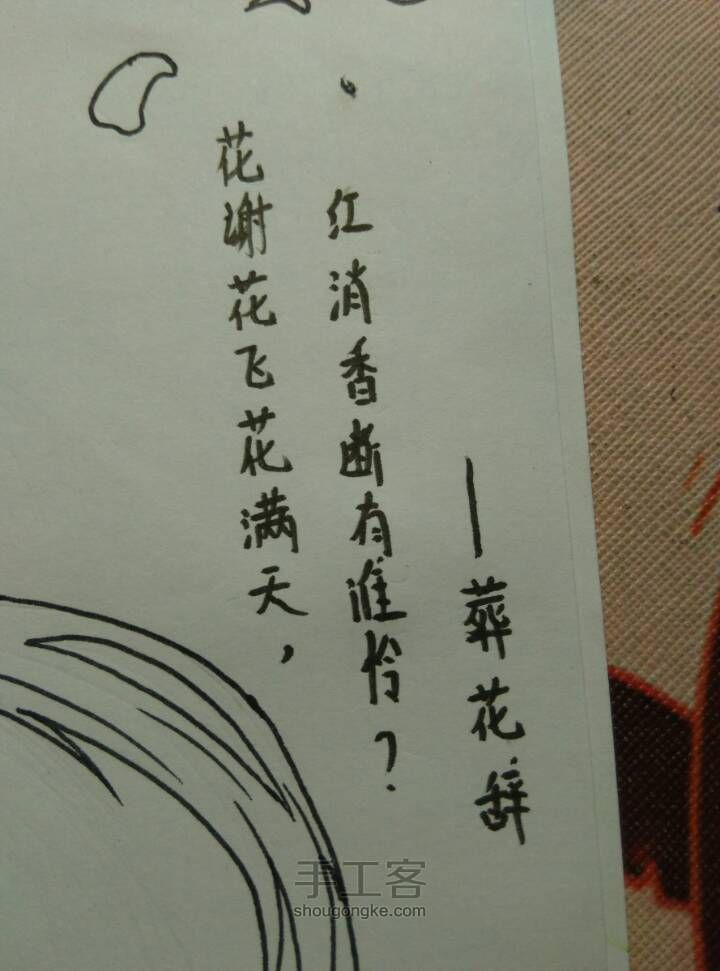 花谢花飞花满天，
红消香断有谁怜？
—葬花辞
手工客
shougongke.com